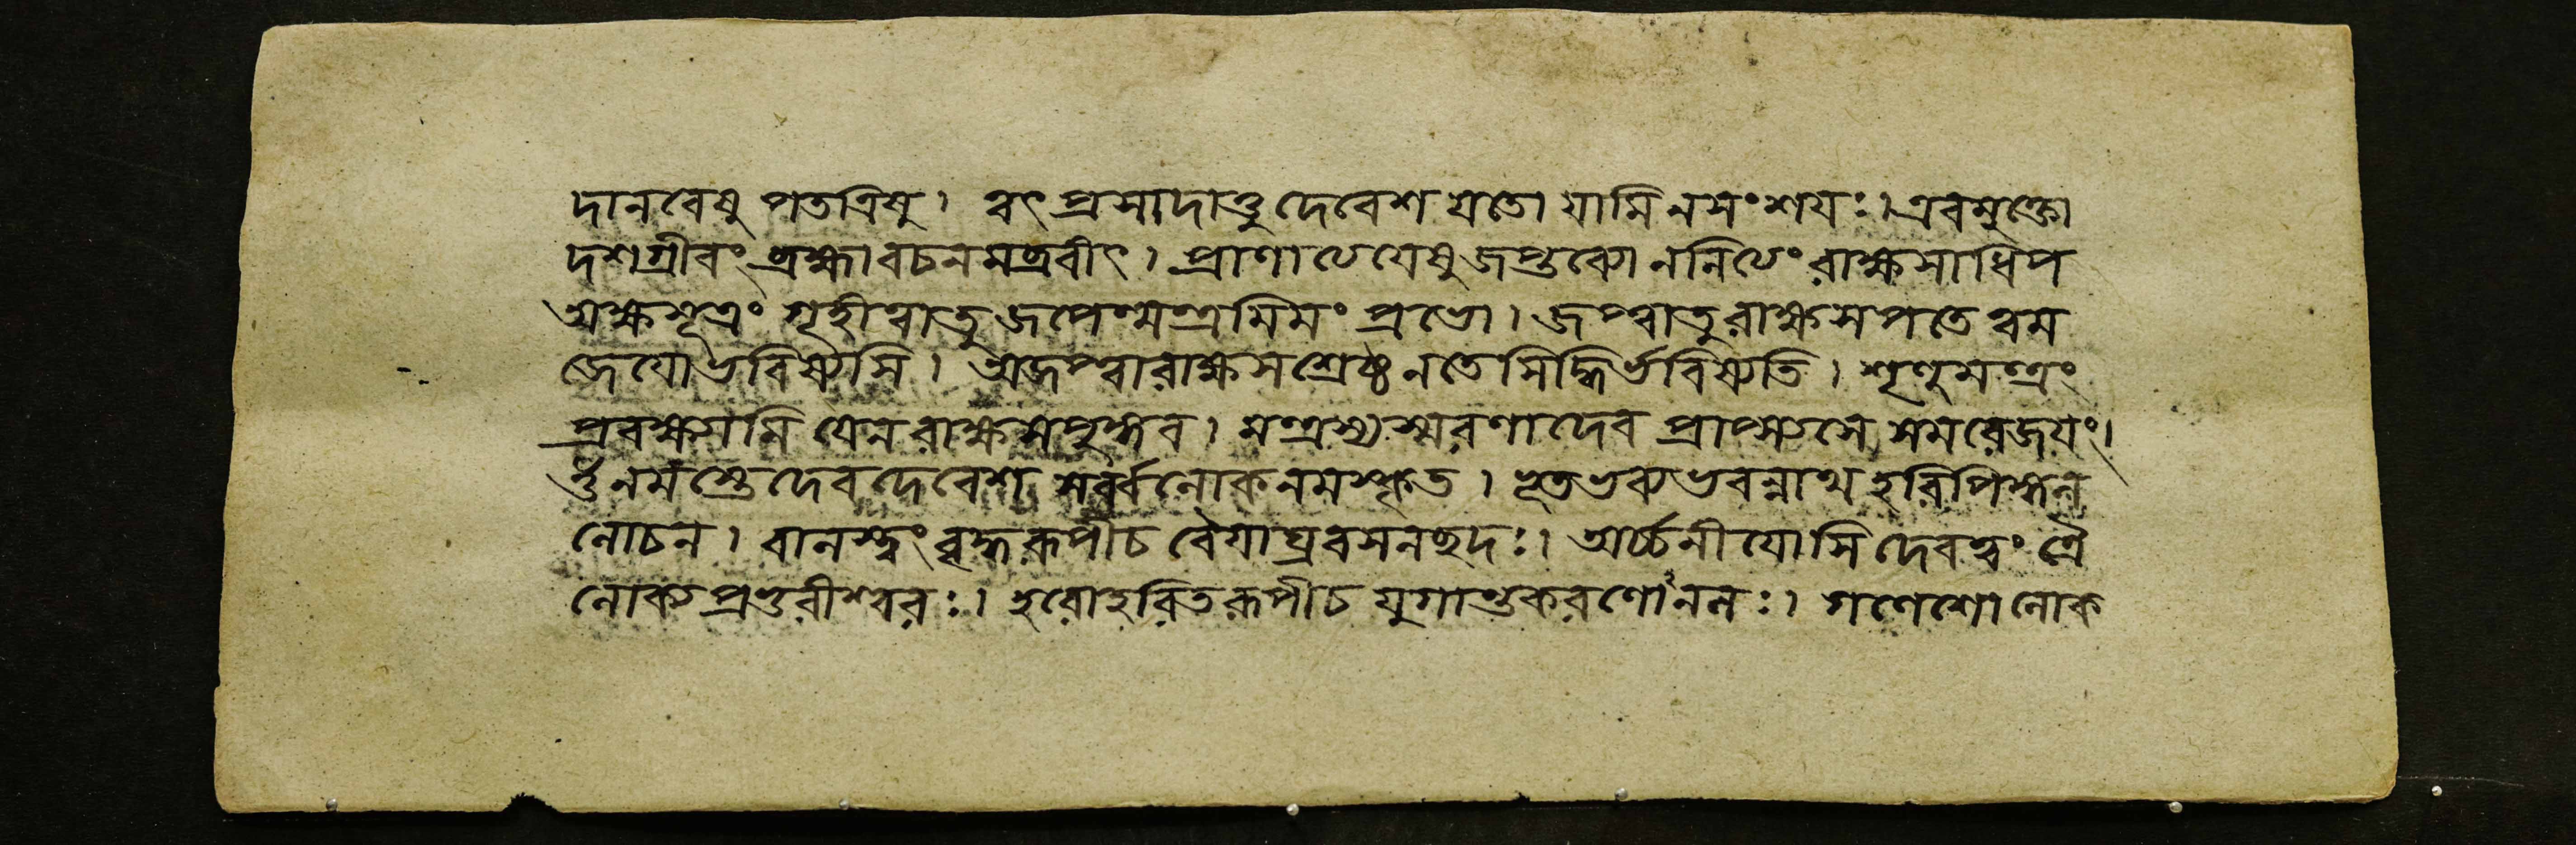 দানবেষু পতত্রিষু। ত্বৎ প্রসাদাত্তু দেবেশ যতো যামি ন সংশয়ঃ। এবমুক্তো
দশগ্রীবং ব্রহ্মা বচনমব্রবীৎ। প্রাণাত্যেযেষু জপ্তব্যো ন নিত্যং রাক্ষসাধিপ
অক্ষসূত্রং গৃহীত্বাতু জপেন্মন্ত্রমিমং প্রভো। জপ্ত্বাতু রাক্ষসপতে ত্বম
জেযো ভবিষ্যসি। অজপ্ত্বা রাক্ষসশ্রেষ্ঠ ন তে সিদ্ধির্ভবিষ্যতি। শৃণু মন্ত্রং
প্রবক্ষ্যামি যেন রাক্ষসপুঙ্গব। মন্ত্রস্য স্মরণাদেব প্রাপ্স্যসে সমরে জয়ং।
ওঁ নমস্তে দেবদেবেশ সর্ব্বলোকনমস্কৃত। ভূতভব্যভবন্নাথ হরিপিঙ্গল
লোচন। বালস্ত্বং বৃদ্ধরূপীচ বৈযাঘ্রবসনছদঃ। অর্চ্চনীযোসি দেবত্বং ত্রৈ
লোক্যপ্রভুরীশ্বরঃ। হরো হরিতরূপীচ যুগান্তকরণোনলঃ। গণেশো লোক